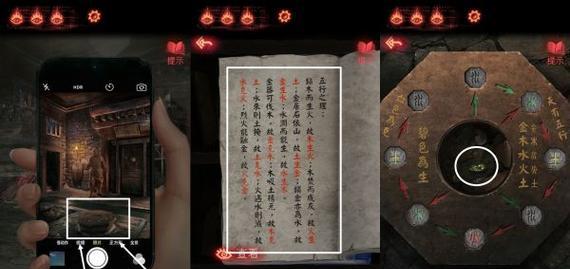 提示
HDR
慢动作 视频 照片 正方形 全景
提示
五行之理：
木而生火，故木生火；木焚而成灰，故火生
土；金居石依山，故土生金；金亦為水，故
金生水；水潤而能生，故水生木。
金器可伐木，故金克木；木吸土精元，故木克
土；水來則土掩，故土克水；火遇水則滅，故
水克火；烈火能融金，故火克金。
查看
提示
五行
金木水火土
碧色為生